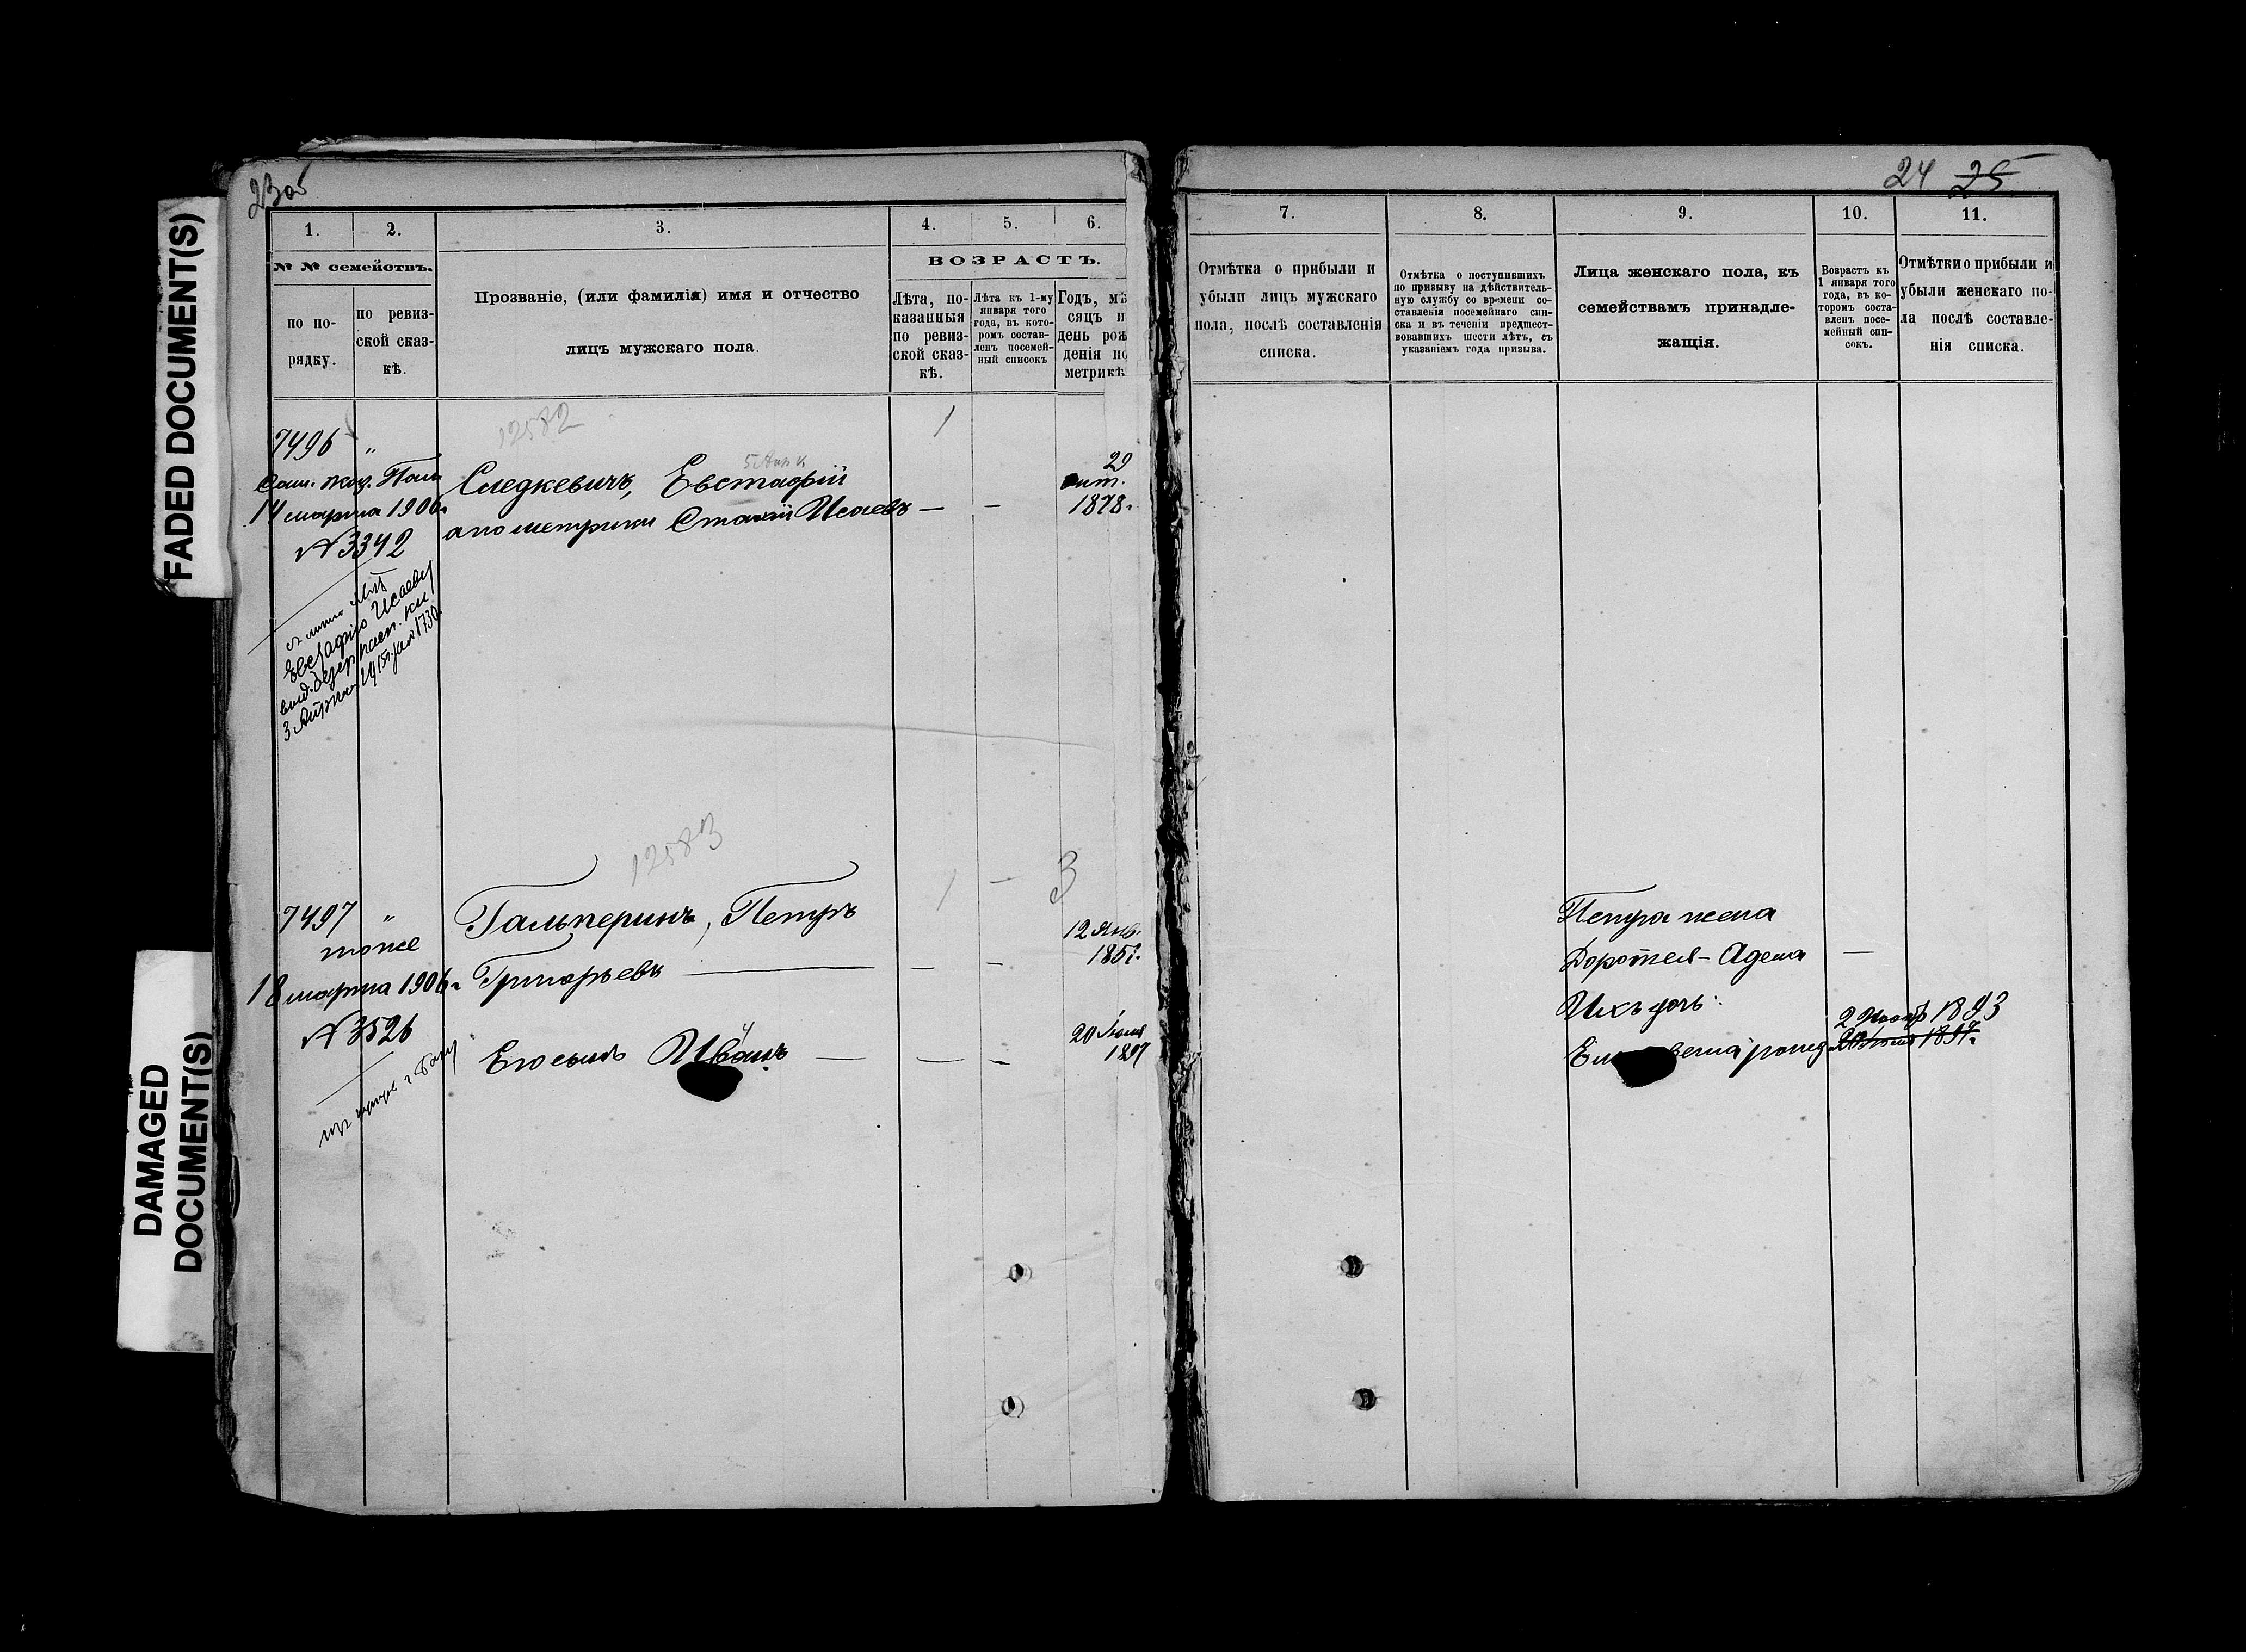 FADED DOCUMENT(S)
DAMAGED
DOCUMENT(S)
23об
1.
2.
3.
4.
5.
6.
№ № семействъ.
по по-
рядку.
по ревиз-
ской сказ-
кѣ.
Прозваніе, (или фамилія) имя и отчество
лицъ мужскаго пола.
ВОЗРАСТЪ.
Лѣта, по-
казанныя
по ревиз-
ской сказ-
кѣ.
Лѣта къ 1-му
января того
года, въ кото-
ромъ состав-
ленъ посемей-
ный списокъ
Годъ, мѣ
сяцъ и
день рож
денія по
метрикѣ
12582
1
7496 "
14 марта 1906 г.
№ 3342
Следкевичъ, Евстафій
а по метрики Стахій Исаевъ — —
29
1878.
Исаеву
12583
1 — 3
7497 "
тоже
18 марта 1906 г.
№ 3526
Гальперинъ, Петръ
Григорьевъ — — —
12 Янв.
185
Его сынъ Иванъ — — —
20 Іюля
1897
24 25
7.
8.
9.
10.
11.
Отмѣтка о прибыли и
убыли лицъ мужскаго
пола, послѣ составленія
списка.
Отмѣтка о поступившихъ
по призыву на дѣйствитель-
ную службу со времени со-
ставленія посемейнаго спи-
ска и въ теченіи предшест-
вовавшихъ шести лѣтъ, съ
указаніемъ года призыва.
Лица женскаго пола, къ
семействамъ принадле-
жащія.
Возрастъ къ
1 января того
года, въ ко-
торомъ соста-
вленъ посе-
мейный спи-
сокъ.
Отмѣтки о прибыли и
убыли женскаго по-
ла послѣ составле-
нія списка.
Петра жена
Доротея-Адела —
Ихъ дочь:
2 Нояб 1893
рожд. 20 Іюля 1897.